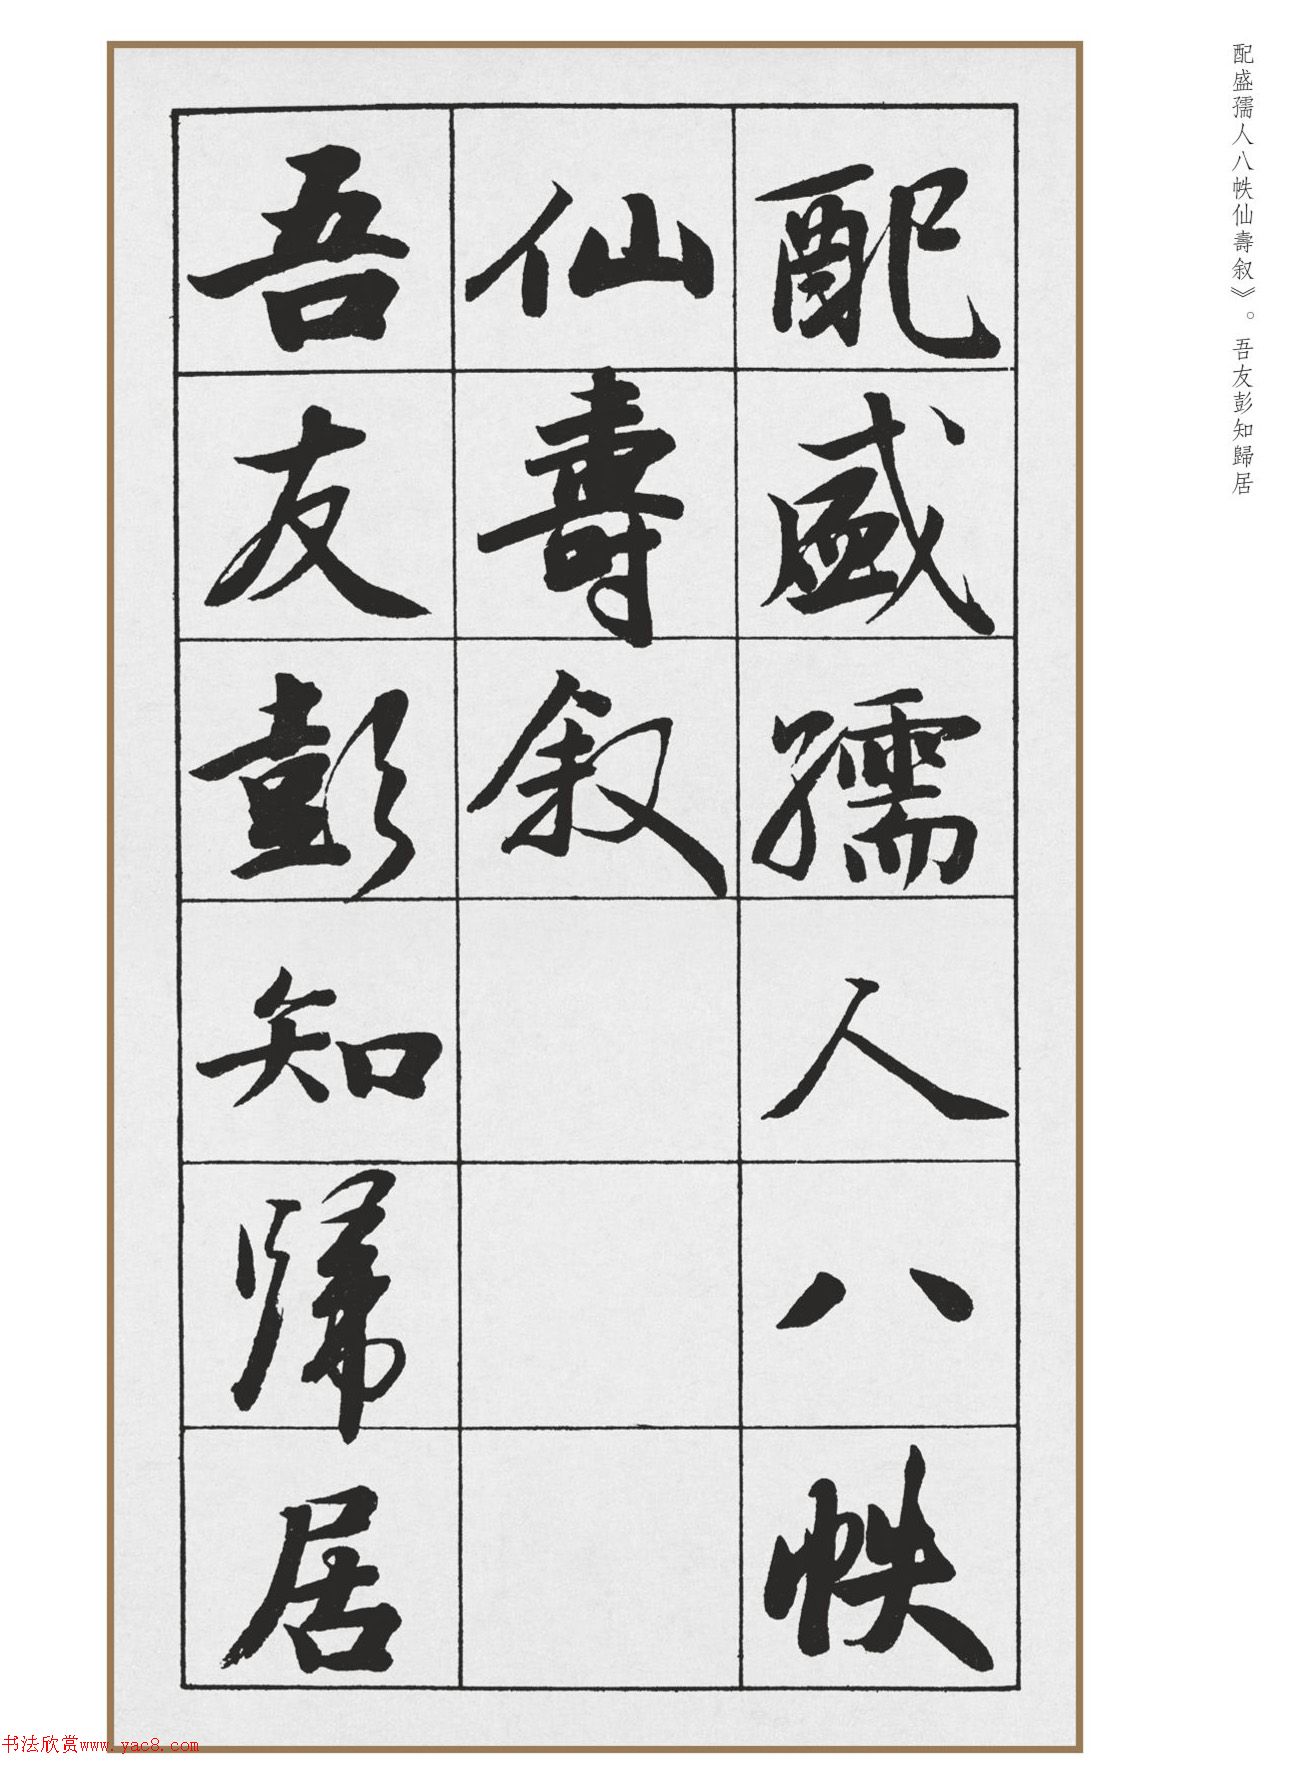 配盛孺人八帙仙壽叙》。吾友彭知歸居
配盛孺人八帙
仙壽叙
吾友彭知歸居
书法欣赏www.yac8.com